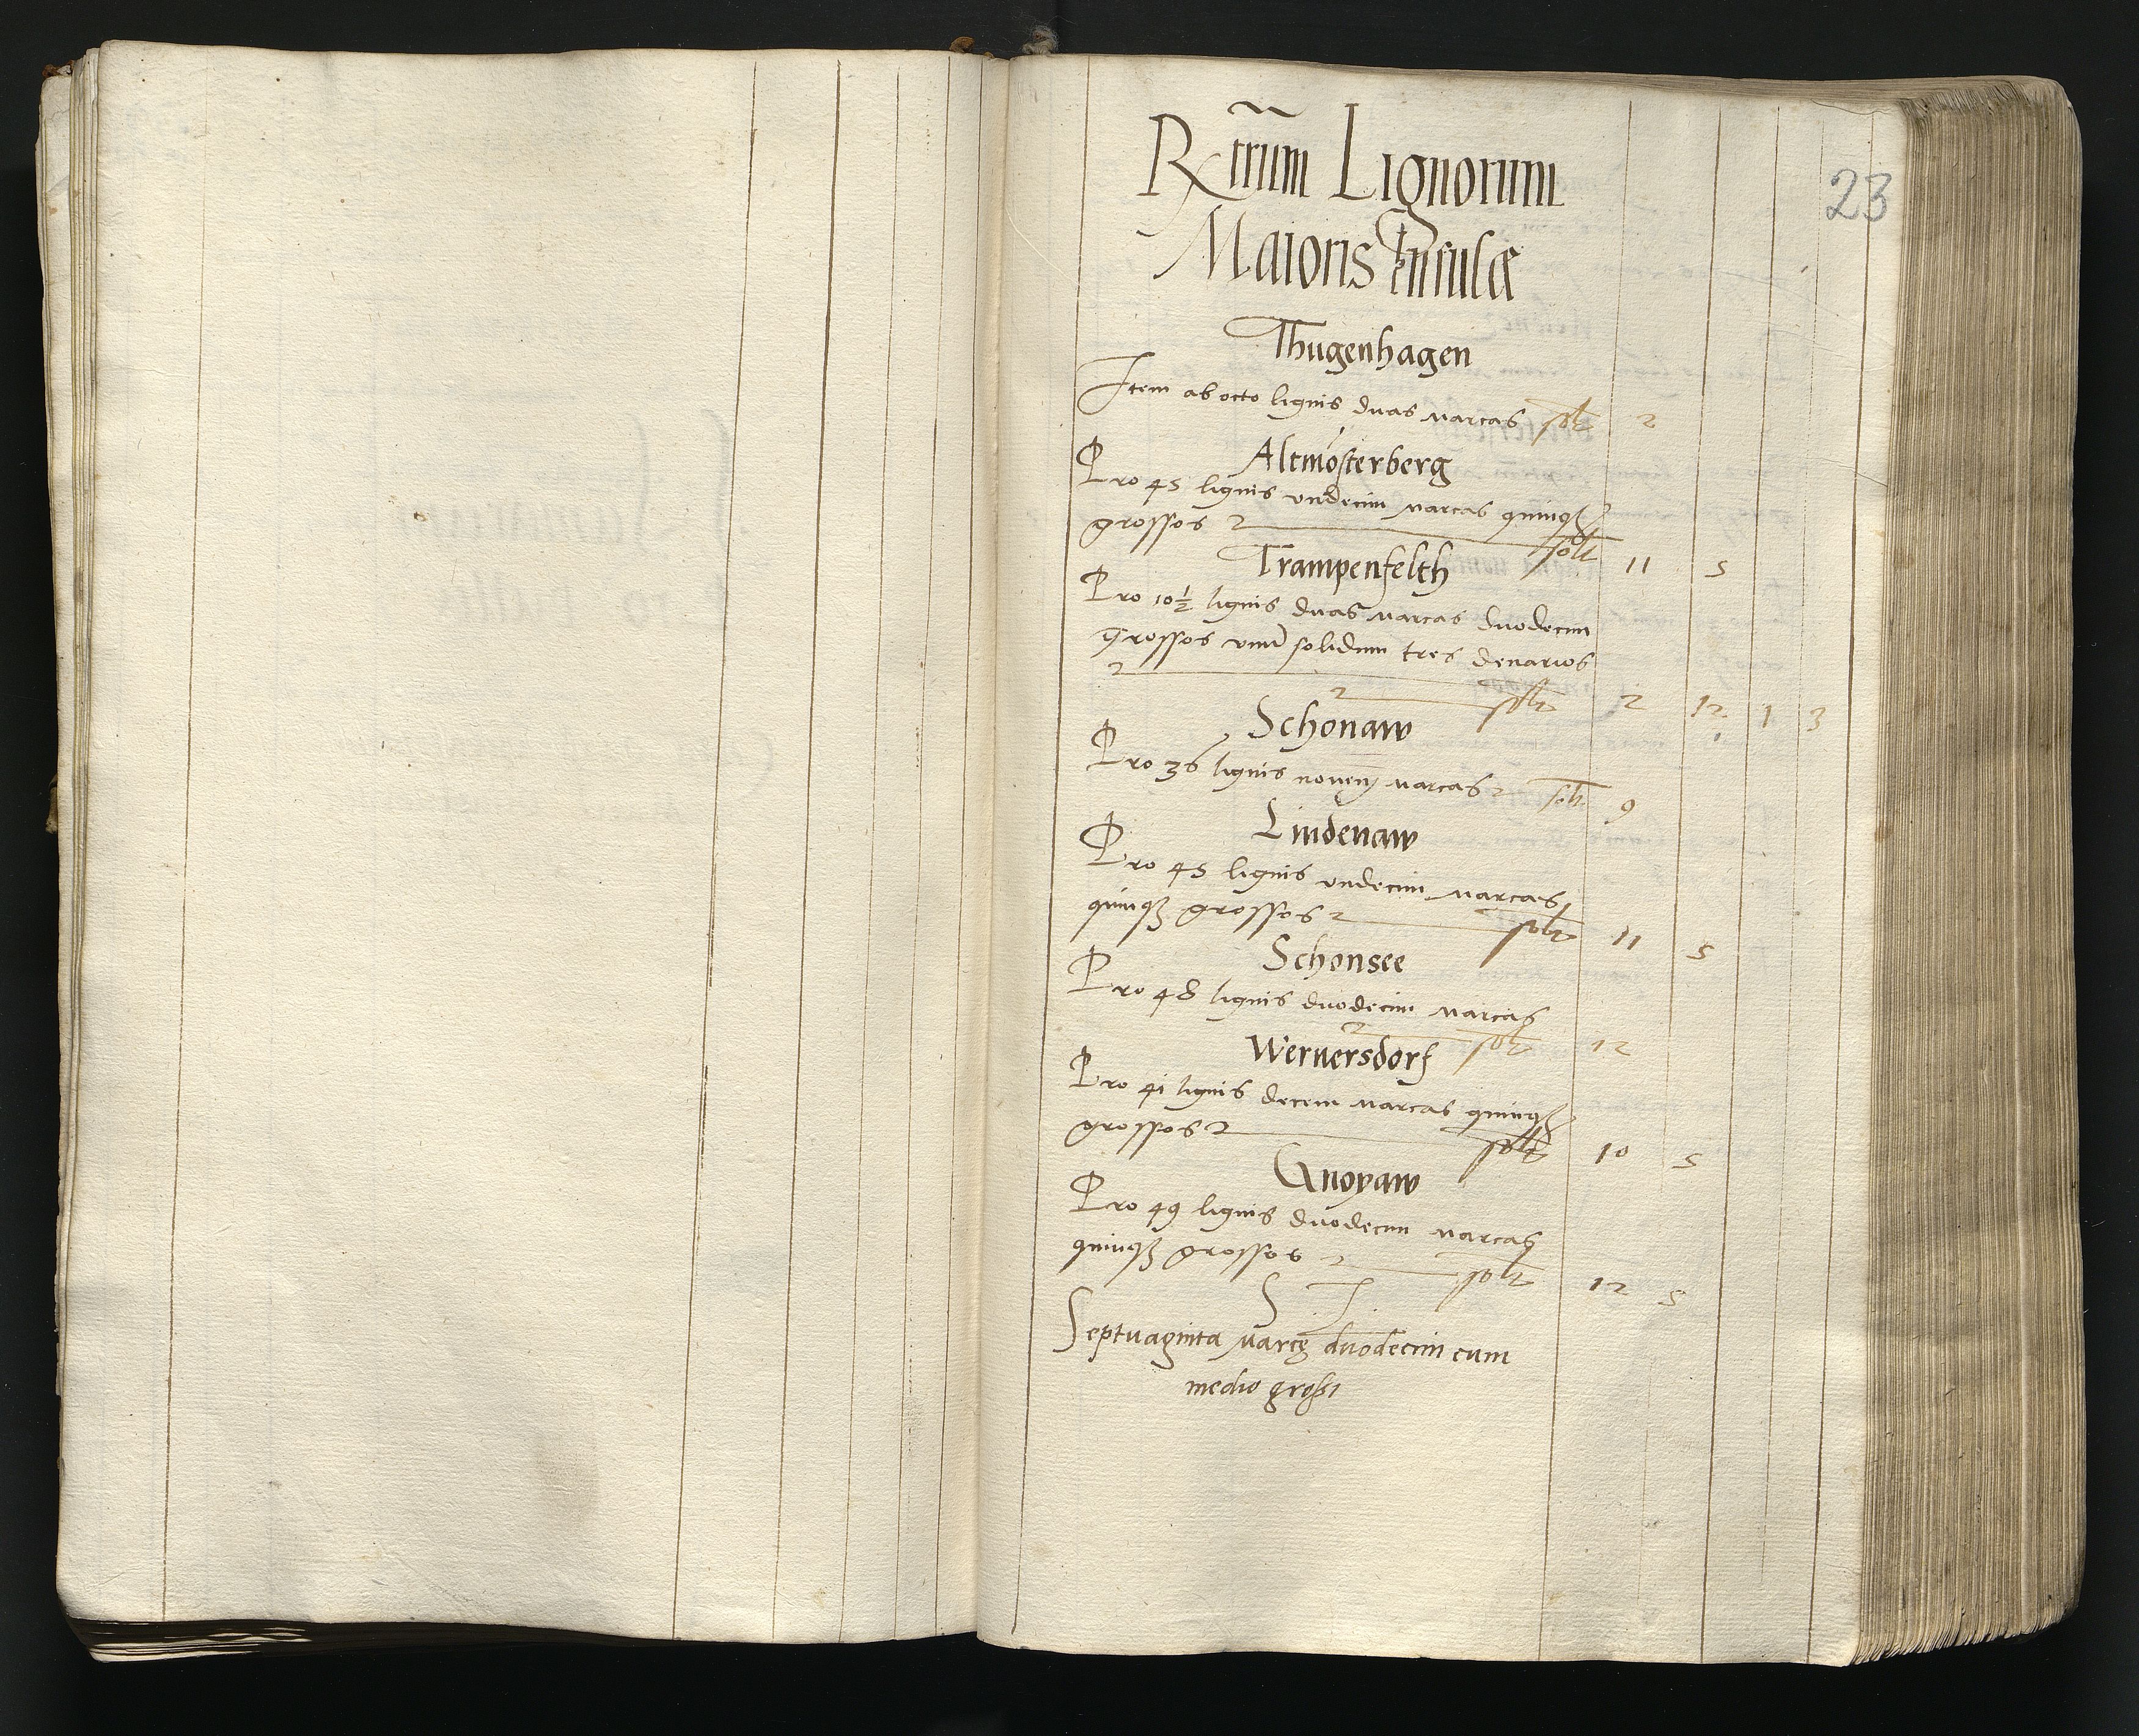 23
Rxtrum Lignorum
Maioris Insulæ
Thugenhagen
Item ab octo lignis duas marcas solt 2
Altmósterberg
Pro 45 lignis vndecim marcas quinqȝ
grossos solt 11 5
Trampenfelth
Pro 10½ lignis duas marcas duodecim
grossos vnū solidum tres denarios
solt 2 12 1 3
Schonaw
Pro 36 lignis nouem marcas solt 9
Lindenaw
Pro 45 lignis vndecim marcas
quinqȝ grossos solt 11 5
Schonsee
Pro 48 lignis duodecim marcas
solt 12
Wernersdorf
Pro 41 lignis decem marcas quinqȝ
grossos solt 10 5
Gnoyaw
Pro 49 lignis duodecim marcas
quinqȝ grossos solt 12 5
Septuaginta marcę duodecim cum
medio grossi